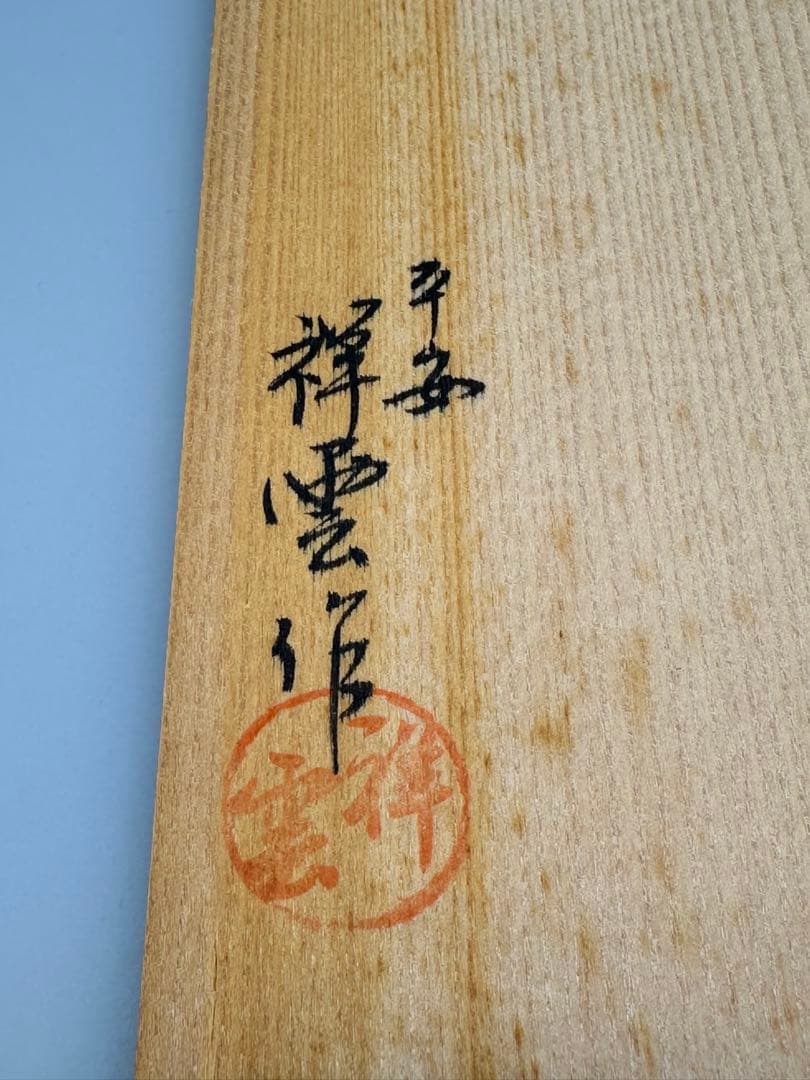 平安
祥雲作
祥雲